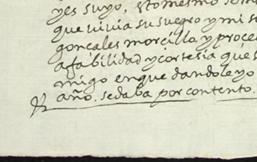 yes suyo, esto mesmo
que vivia su suegro y mi s
gonçales morcillo y proce
afabilidad y cortesia que
migo en que dandole yo
año. se daba por contento.